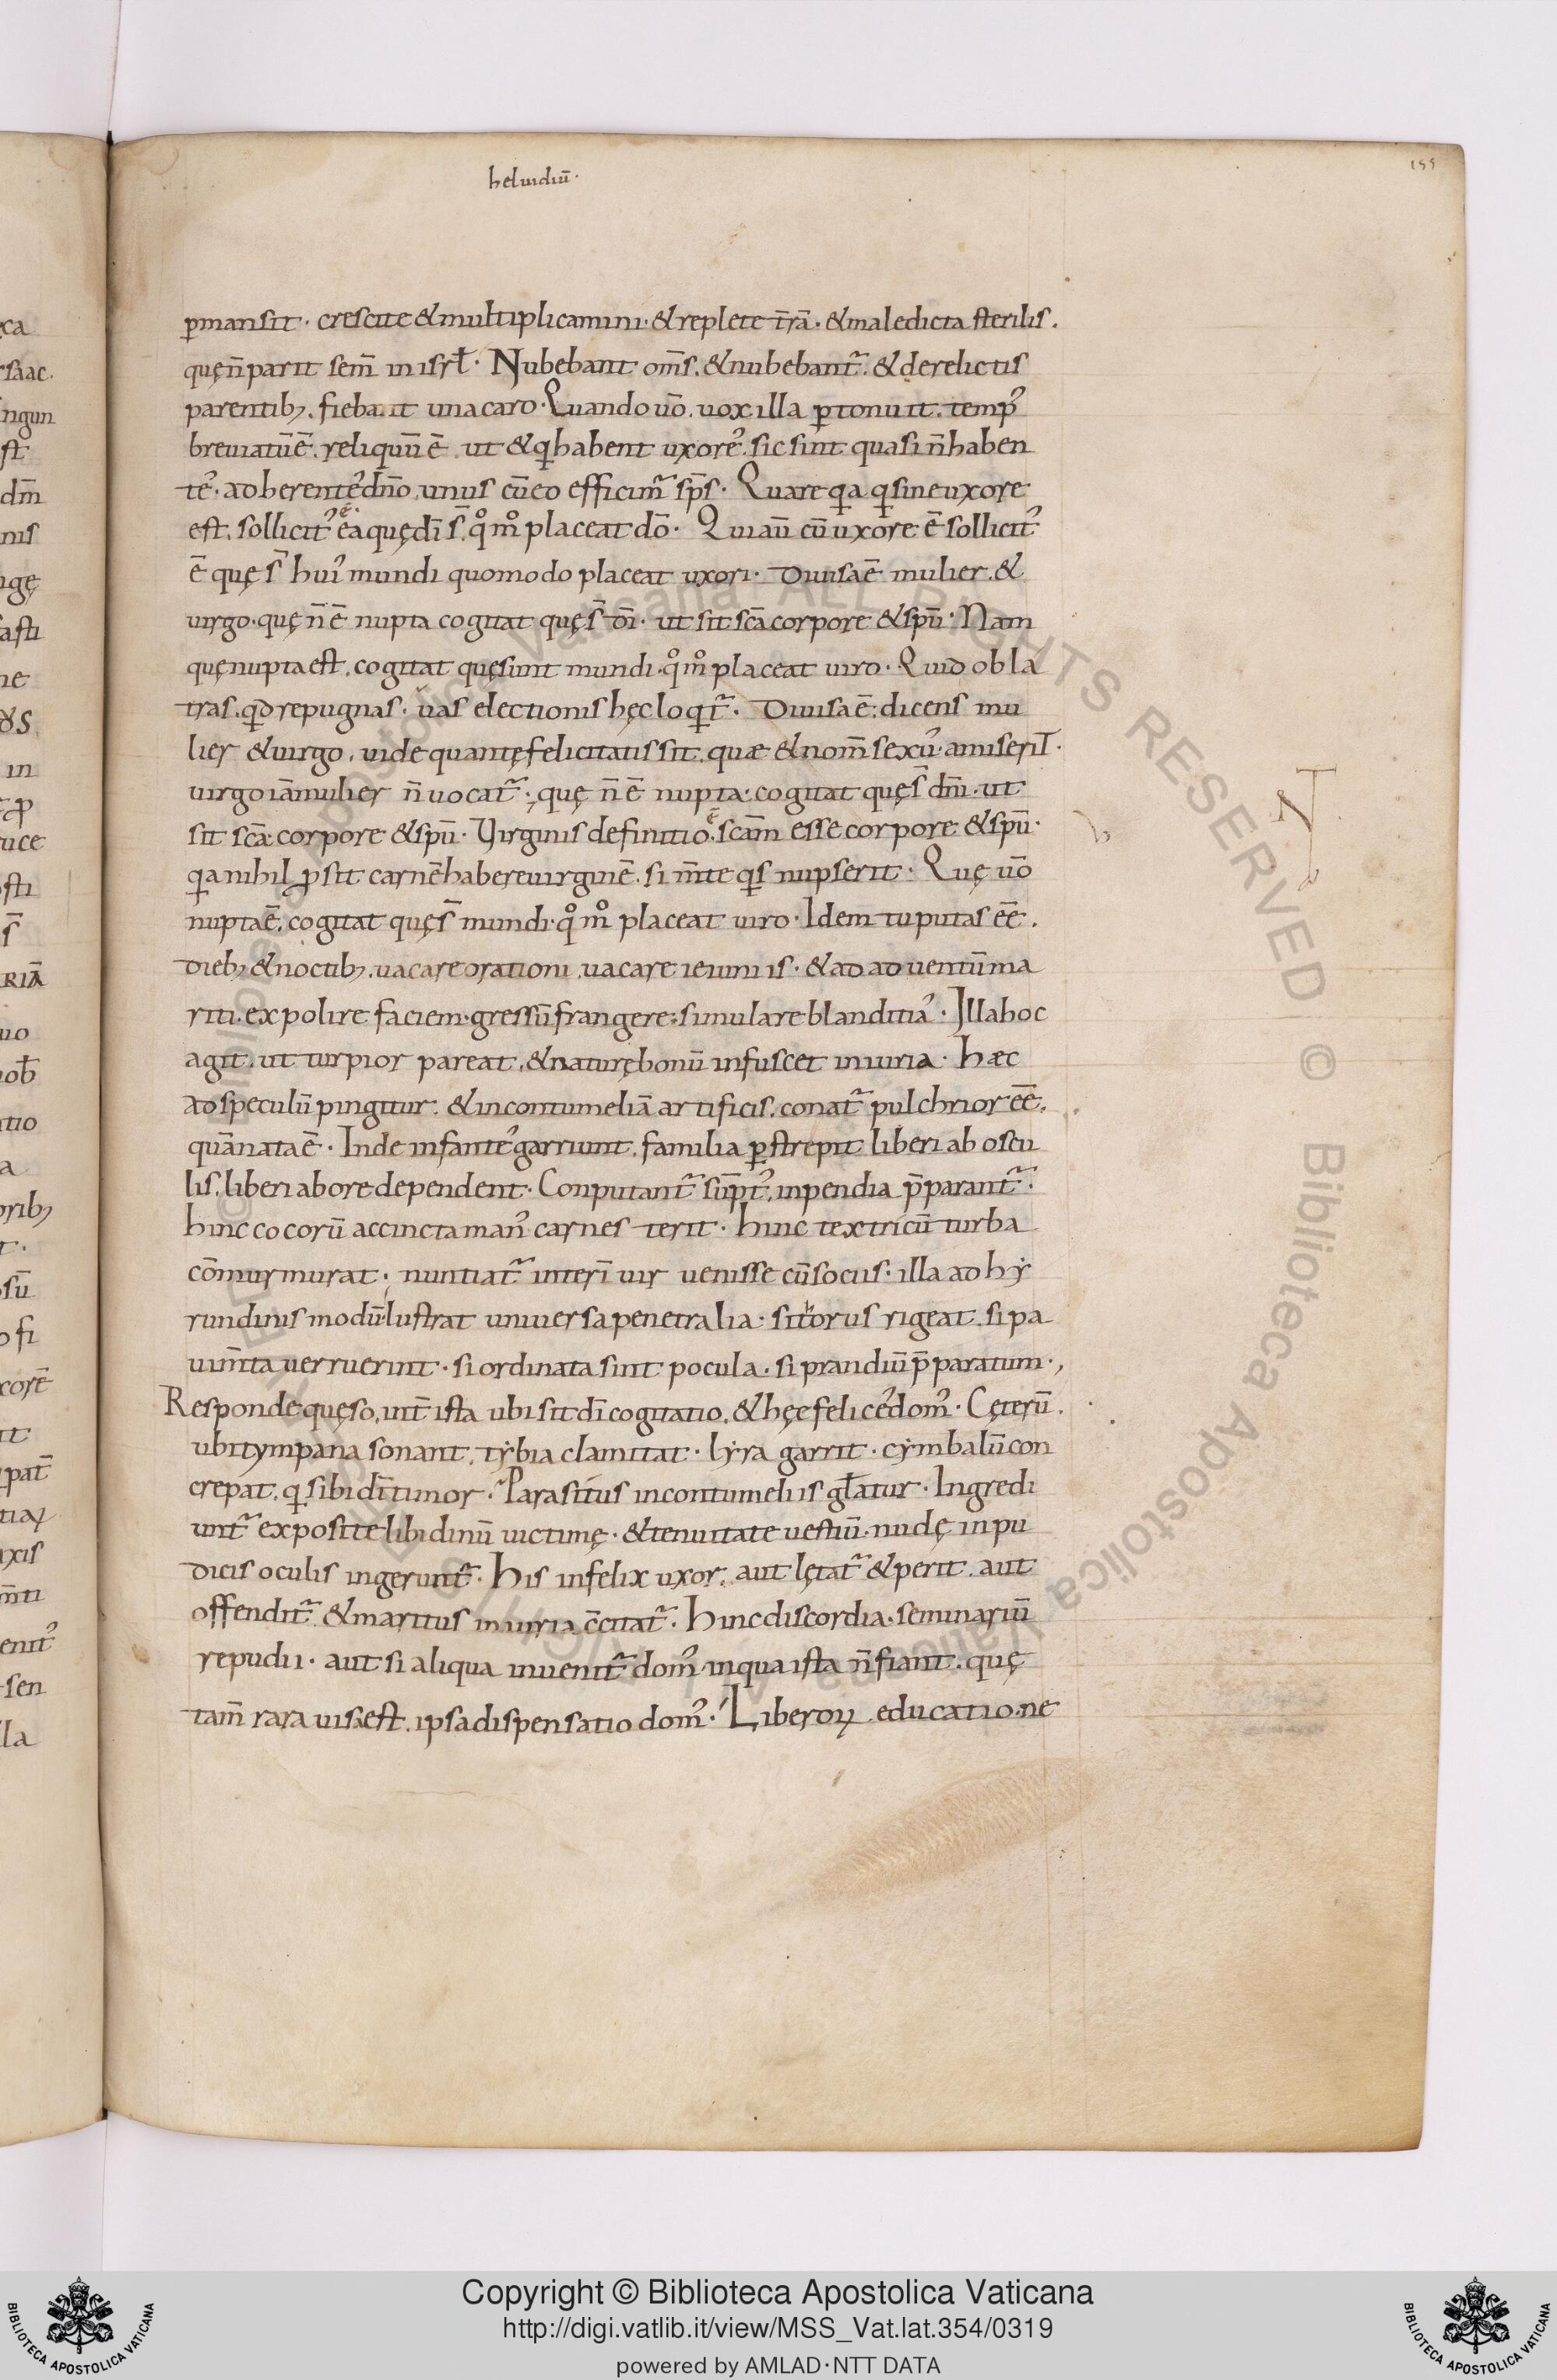 heluidiū·
155
ꝑmansit· crescite &multiplicamini· &replete t̄rā· &maledicta sterilis.
quęn̄parit sem̄ inisrł· Nubebant om̄s. &nubebant᷑. &derelictis
parentib;. fiebant unacaro· Quando ūo. uox illa ꝑtonuit. tempꝰ
breuiatūē. reliquū ē ut &qͥhabent uxoreꝰ. sic sint quasi n̄haben
teꝰ· adherenteꝰ dn̄o. unus cūeo efficim᷑ sp̄s· Quare qͥa qͥsineuxore
est. sollicitꝰ ē ea quędī s̄. qͦmͦ placeat dō· Quiaū cū uxore ē sollicitꝰ
ē quę s̄ huiꝰ mundi quomodo placeat uxori· Diuisaē mulier. &
uirgo· quę n̄ ē nupta cogitat quę s̄ dī· ut sit scā corpore &spū· Nam
quęnupta est. cogitat quęsunt mundi· qͦmͦ placeat uiro· Quid obla
tras. qͥd repugnas· uas electionis hęc loqͥt᷑· Diuisa ē. dicens mu
lier &uirgo. uide quantęfelicitatis sit. quæ &nom̄ sexuꝰ amiserit·
uirgo iāmulier n̄ uocat᷑· quę n̄ ē nupta· cogitat quęs̄ dn̄i· ut
sit scā corpore &spū· Virginis definitio ē. scām esse corpore &spū·
qͥa nihil ꝓsit carnē habere uirginē. si m̄te qͥs nupserit· Quę ūo
nupta ē. cogitat quęs̄ mundi· qͦ mͦ placeat uiro· Idem tu putas ēē.
dieb; &noctib;. uacare orationi. uacare ieiuniis· &ad aduentū ma
riti· expolire faciem· gressū frangere· simulare blanditiaꝰ· Illa hoc
agit. ut turpior pareat. &naturę bonū infuscet iniuria· Hæc
ad speculū pingitur. &incontumeliā artificis. conat᷑ pulchrior ēē.
quānata ē· Inde infanteꝰ garriunt. familia ꝑstrepit liberi ab oscu
lis. liberi abore dependent· Conputant᷑ sūptꝰ. inpendia p̄parant᷑·
hinc cocorū accincta manꝰ carnes terit· hinc textricū turba
cōmurmurat· nuntiat᷑ interī uir uenisse cūsociis· illa ad hẏ
rundinis modū lustrat uniuersa penetralia· si torus rigeat. si pa
uim̄ta uerruerint· si ordinata sint pocula· si prandiū p̄paratum·,
Responde quęso. int̄ ista ubi sit dī cogitatio. &hęe feliceꝰ domꝰ· Cęterū.
ubi tympana sonant. tẏbia clamitat· lẏra garrit· cẏmbalū con
crepat. qͥ sibi dī timor· Parasitus incontumeliis głatur· Ingredi
unt᷑ exposite libidinū uictimę· &tenuitate uestiū· nudę inpu
dicis oculis ingerunt᷑· His infelix uxor. aut lętat᷑ &perit. aut
offendit᷑ &maritus iniuria c̄citat᷑· Hinc discordia· seminariū
repudii· aut si aliqua inuenit᷑ domꝰ inqua ista n̄ fiant. quę
tam̄ rara uis est. ipsa dispensatio domꝰ· Liberoꝝ educatione
Copyright © Biblioteca Apostolica Vaticana
http://digi.vatlib.it/view/MSS_Vat.lat.354/0319
powered by AMLAD·NTT DATA